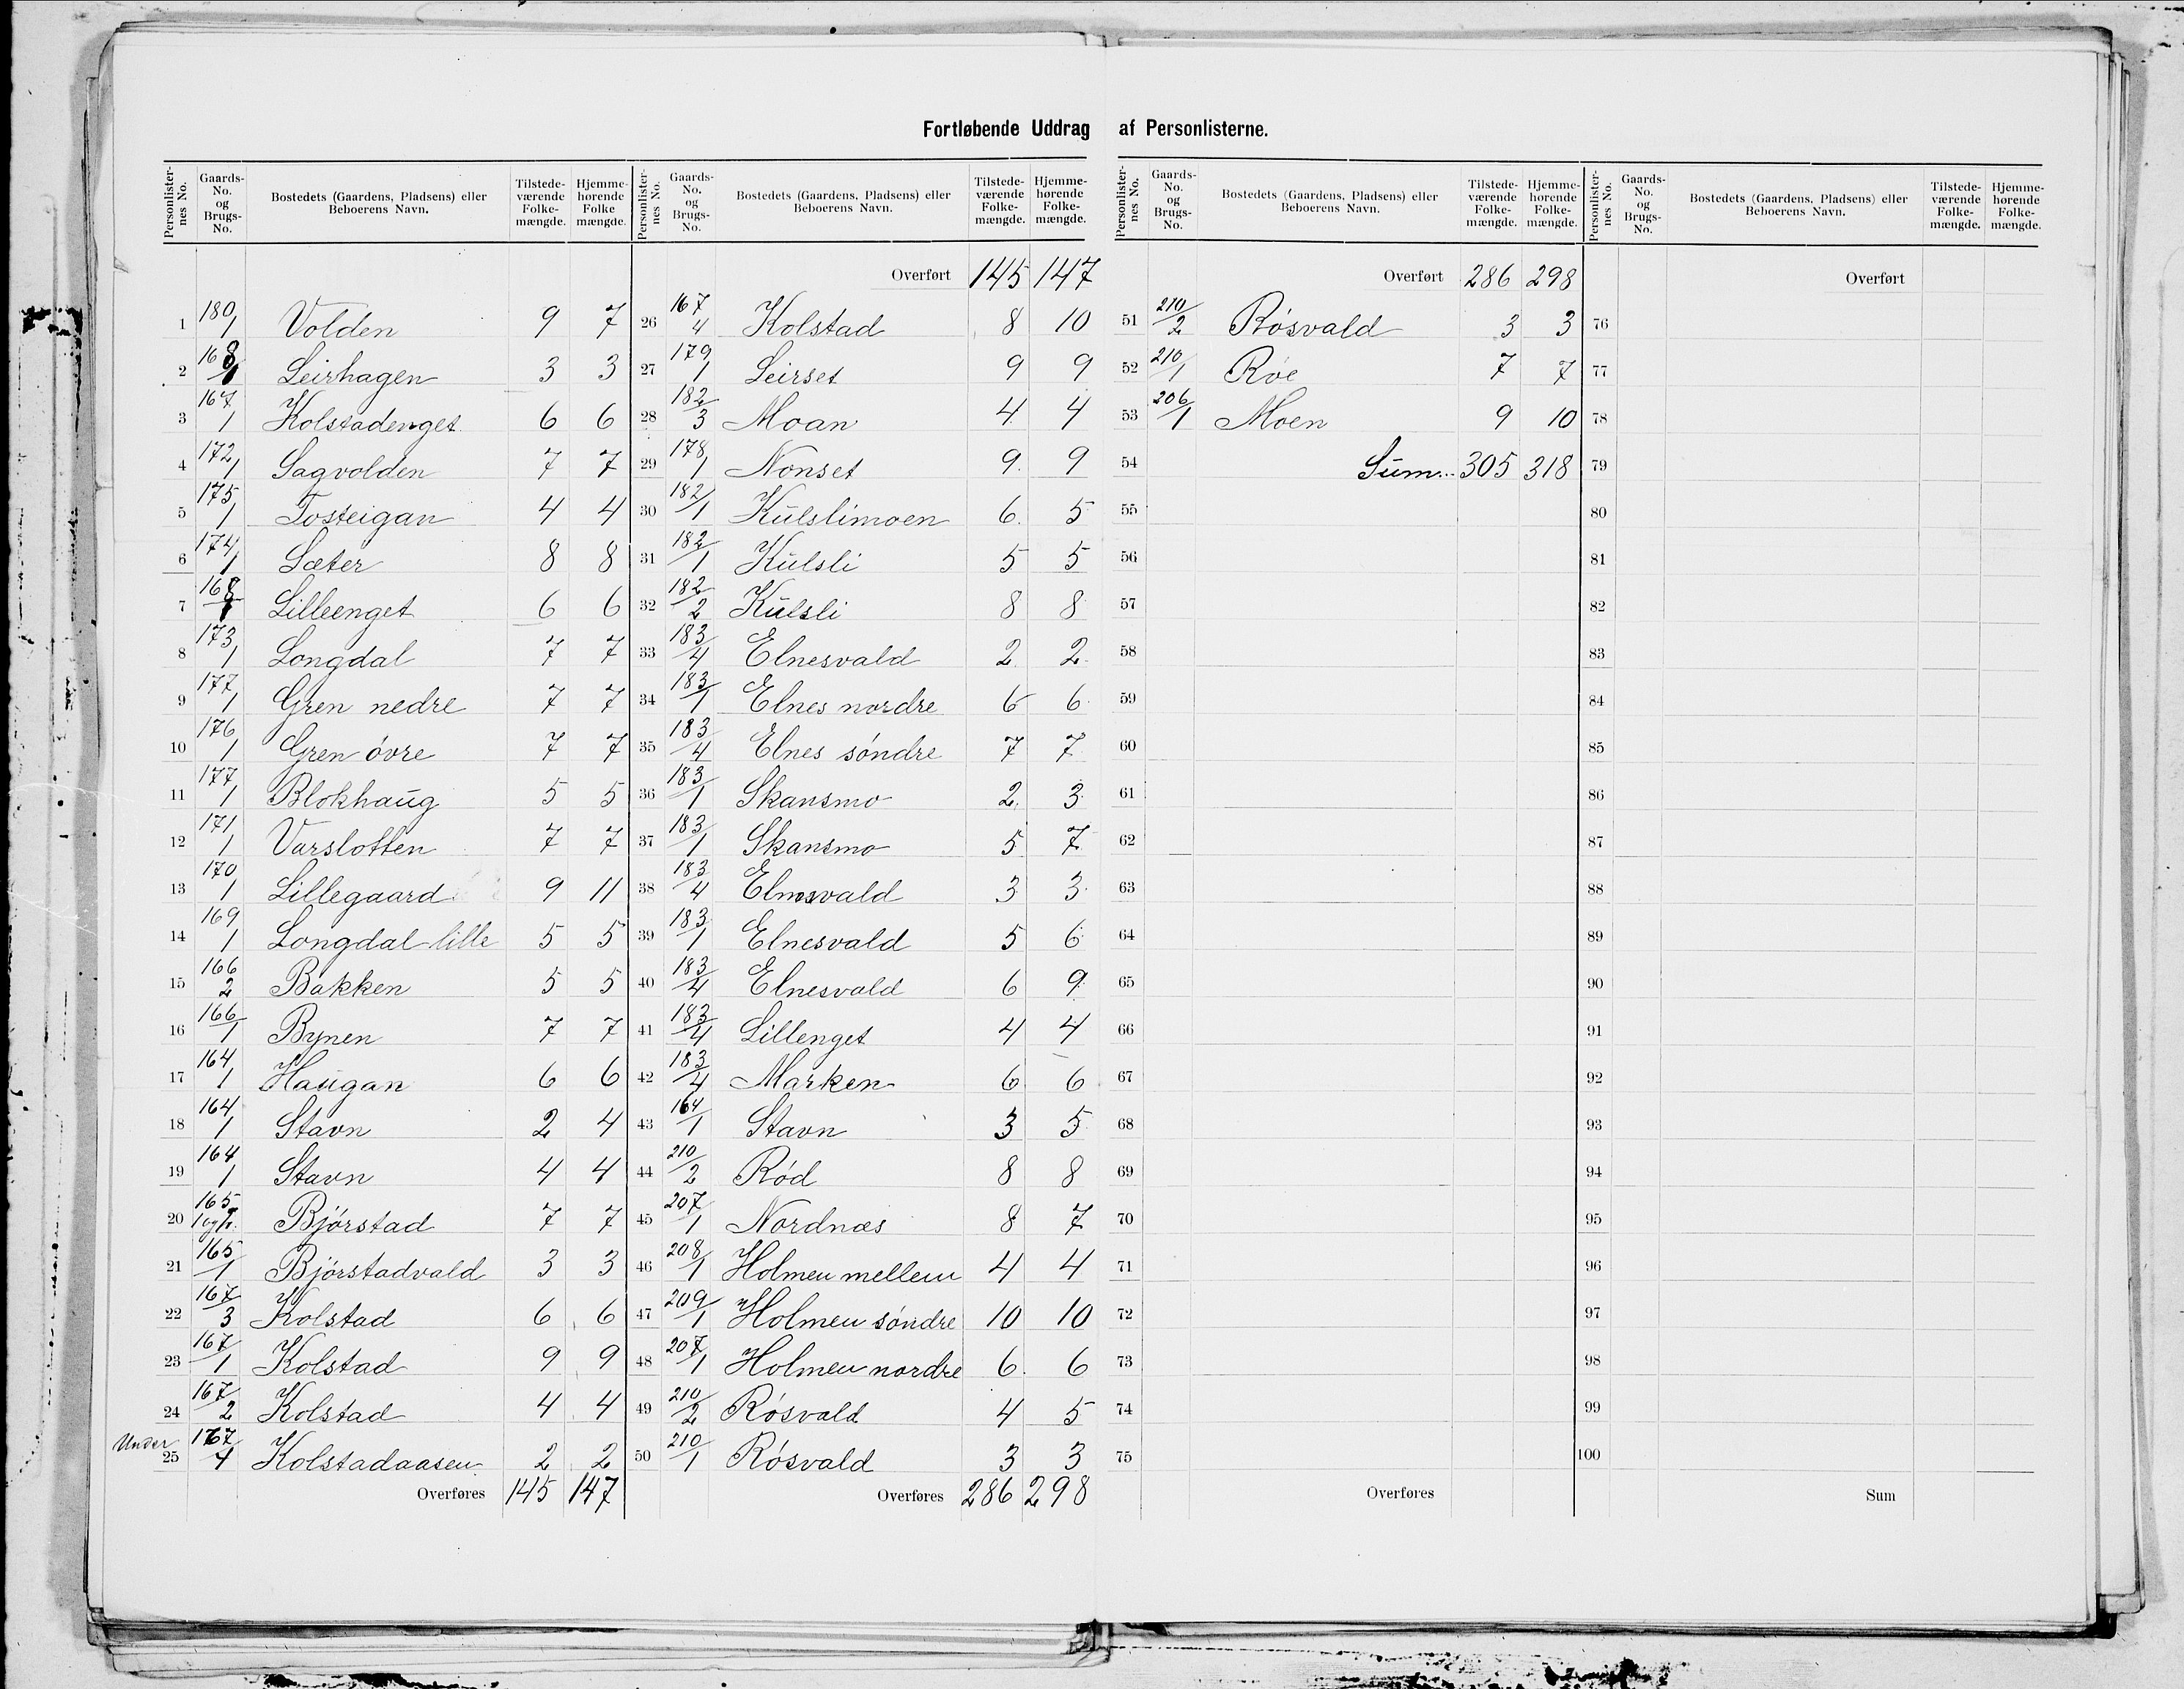 Fortløbende Uddrag af Personlisterne.
Personlisternes No. | Gaards-No. og Brugs-No. | Bostedets (Gaardens, Pladsens) eller Beboerens Navn. | Tilstedeværende Folkemængde. | Hjemmehørende Folkemængde.
1 180/1 Volden 9 7
2 168/1 Leirhagen 3 3
3 167/1 Kolstadenget 6 6
4 172/1 Sagvolden 7 7
5 175/1 Tosteigan 4 4
6 174/1 Sæter 8 8
7 168/1 Lilleenget 6 6
8 173/1 Longdal 7 7
9 177/1 Gren nedre 7 7
10 176/1 Gren óvre 7 7
11 177/1 Blokhaug 5 5
12 171/1 Varslotten 7 7
13 170/1 Lillegaard 9 11
14 169/1 Longdal lille 5 5
15 166/2 Bakken 5 5
16 166/1 Bynen 7 7
17 164/1 Haugan 6 6
18 164/1 Stavn 2 4
19 164/1 Stavn 4 4
20 165/1 og Bjórstad 7 7
21 165/1 Bjórstadvald 3 3
22 167/3 Kolstad 6 6
23 167/1 Kolstad 9 9
24 167/2 Kolstad 4 4
Under 25 167/4 Kolstadaasen 2 2
Overføres 145 147
Personlisternes No. | Gaards-No. og Brugs-No. | Bostedets (Gaardens, Pladsens) eller Beboerens Navn. | Tilstedeværende Folkemængde. | Hjemmehørende Folkemængde.
Overført 145 147
26 167/4 Kolstad 8 10
27 179/1 Leirset 9 9
28 182/3 Moan 4 4
29 178/1 Nonset 9 9
30 182/1 Kulslimoen 6 5
31 182/1 Kulsli 5 5
32 182/2 Kulsli 8 8
33 183/4 Elnesvald 2 2
34 183/1 Elnes nordre 6 6
35 183/4 Elnes sóndre 7 7
36 183/1 Skansmo 2 3
37 183/1 Skansmo 5 7
38 183/4 Elnesvald 3 3
39 183/1 Elnesvald 5 6
40 183/4 Elnesvald 6 9
41 183/4 Lillenget 4 4
42 183/4 Marken 6 6
43 164/1 Stavn 3 5
44 210/2 Ród 8 8
45 207/1 Nordnæs 8 7
46 208/1 Holmen mellem 4 4
47 209/1 Holmen sóndre 10 10
48 207/1 Holmen nordre 6 6
49 210/2 Rósvald 4 5
50 210/1 Rósvald 3 3
Overføres 286 298
Personlisternes No. | Gaards-No. og Brugs-No. | Bostedets (Gaardens, Pladsens) eller Beboerens Navn. | Tilstedeværende Folkemængde. | Hjemmehørende Folkemængde.
Overført 286 298
51 210/2 Rósvald 3 3
52 210/1 Róe 7 7
53 206/1 Moen 9 10
54 Sum... 305 318
55
56
57
58
59
60
61
62
63
64
65
66
67
68
69
70
71
72
73
74
75
Overføres
Personlisternes No. | Gaards-No. og Brugs-No. | Bostedets (Gaardens, Pladsens) eller Beboerens Navn. | Tilstedeværende Folkemængde. | Hjemmehørende Folkemængde.
Overført
76
77
78
79
80
81
82
83
84
85
86
87
88
89
90
91
92
93
94
95
96
97
98
99
100
Sum